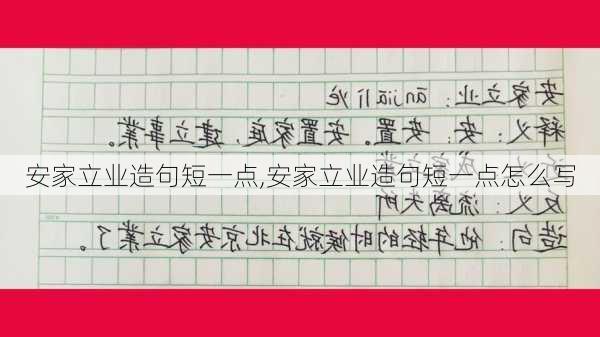 安家立业：ānjiā lì yè
释义：安：安置。安置家庭，建立事業。
安家立业造句短一点,安家立业造句短一点怎么写
反义：流离失所
造句：他年轻的时候就在北京安家立業了。